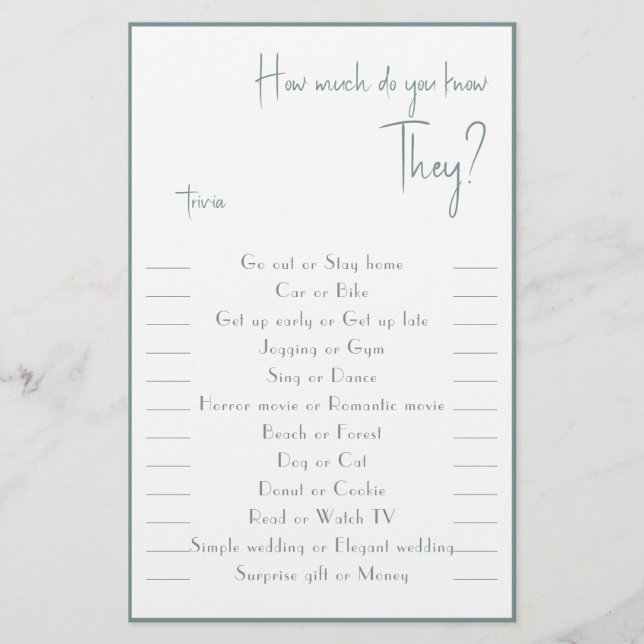 How much do you know
They?
Trivia
Go out or Stay home
Car or Bike
Get up early or Get up late
Jogging or Gym
Sing or Dance
Horror movie or Romantic movie
Beach or Forest
Dog or Cat
Donut or Cookie
Read or Watch TV
Simple wedding or Elegant wedding
Surprise gift or Money